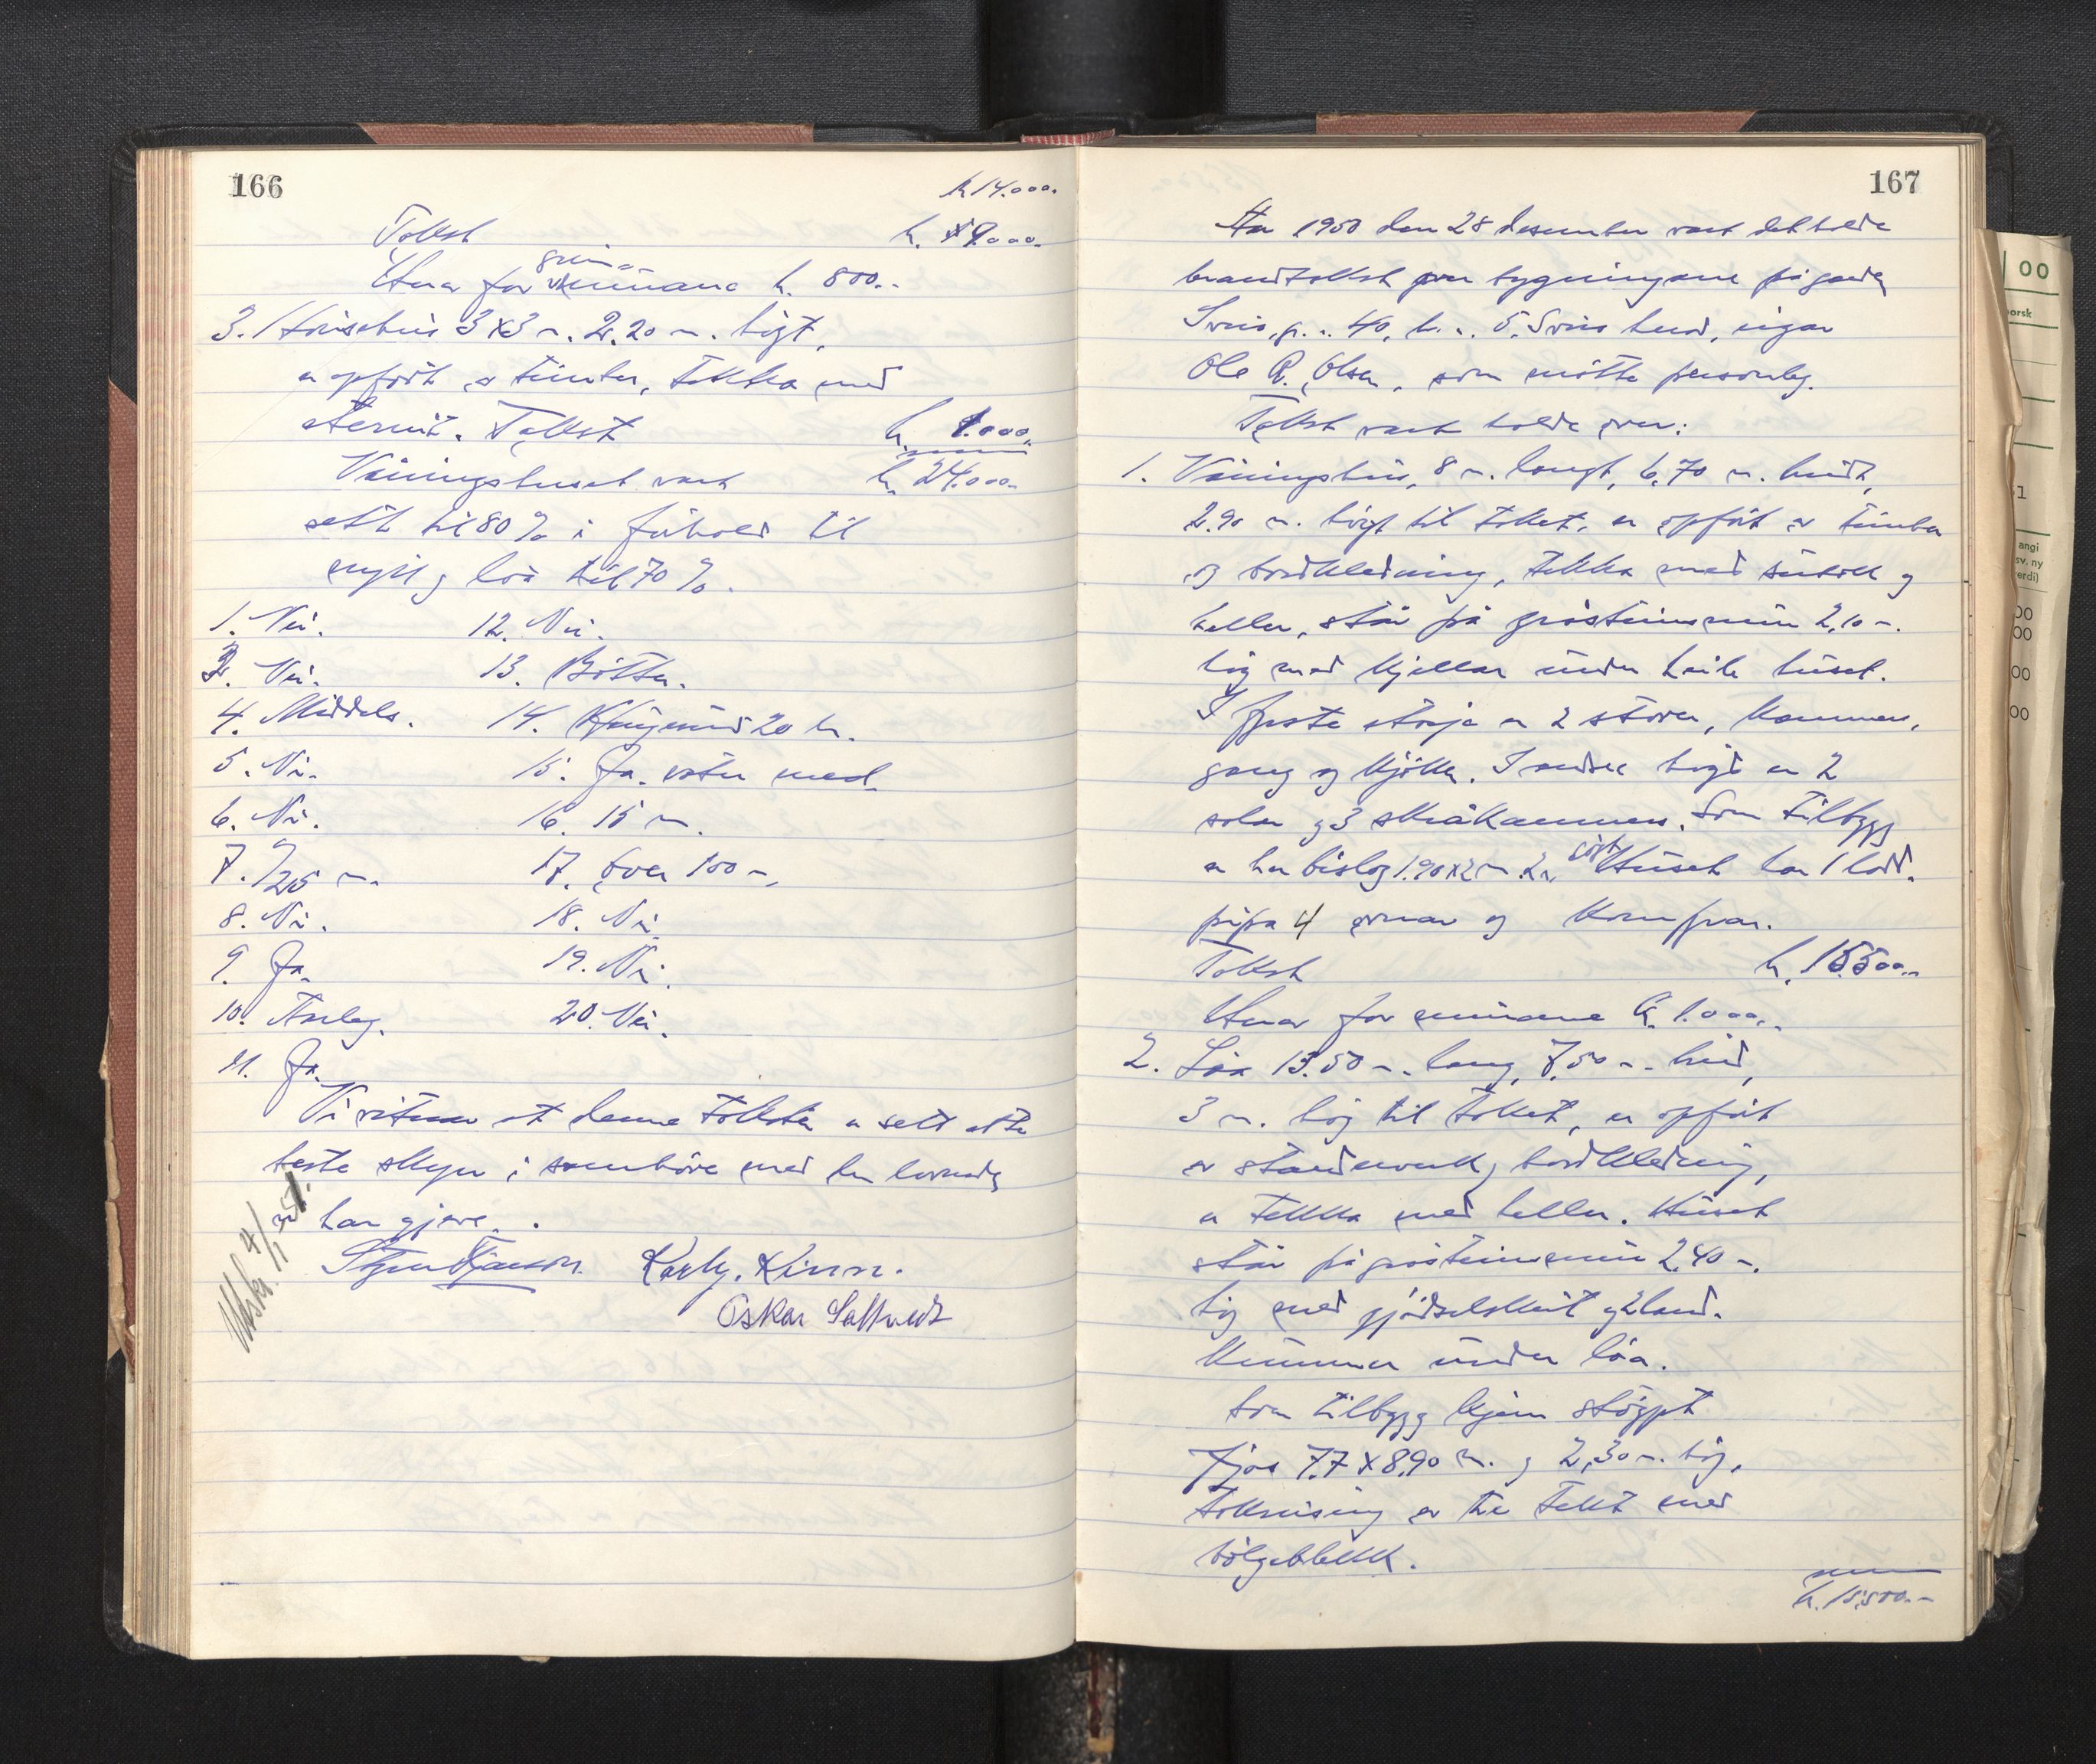 166
k 14.000.
Takst k. 9.000.
grunn-
Herav for murane k. 800.-
3. Hønsehus 3x3 m. 2.20 m. høgt,
er oppført av timber, tekka med
eternit. Takst k. 1.000.
Våningshuset vart k. 24.000.-
sett til 80% i forhold til
nytt og løa til 70%.
1. Nei. 12. Nei.
3. Nei. 13. Bøtter.
4. Middels. 14. 20 k.
5. Nei. 15. Ja. med.
6. Nei. 16. 15 m.
7. 1/25 m. 17. Over 100 m.
8. Nei. 18. Nei.
9. Ja. 19. Nei.
10. Årleg. 20. Nei.
11. Ja.
Vi vitnar at denne taksten er sett etter
beste skjøn i samhøve med lovande
har gjeve.
Utskr. 4/1 51.
Karl J. Kinn.
Oskar
167
År 1950 den 28 desember vart det halde
brandtakst over bygningane på garden
g.nr. 40, b.nr. 5, eigar
Ole R. Olsen, som møtte personleg.
Takst vart halde over:
1. Våningshus, 8 m. langt, 6,70 m. breidt,
2.90 m. høgt til taket, er oppført av timber
og bordkledning, tekka med sutak og
heller, står på gråsteinsmur 2,10 m.
høg med kjellar under heile huset.
I fyrste høgja er 2 stover, kammers,
gang og kjøken. I andre høgd er 2
salar og 3 skråkammers. Som tilbygg
er her bislag 1.90x2 m. 2 m. høgt. Huset har 1 lodd.
pipa 4 omnar og komfyr.
Takst k. 15.500.-
Herav for murane k. 1.000.-
2. Løa 13.50 m. lang, 7,50 m. breid,
3 m. høg til taket, er oppført
av standerverk og bordkledning,
er tekka med heller. Huset
står på gråsteinsmur 2,40 m.
høg med gjødselskut og land-
kummer under løa.
Som tilbygg kjem støypt
Fjøs 7,7 x 8,90 m. og 2,30 m. høg,
takreising av tre tekt med
bølgeblekk.
k. 15,500.-
00
norsk
angi
sv. ny
verdi)
00
00
00
00